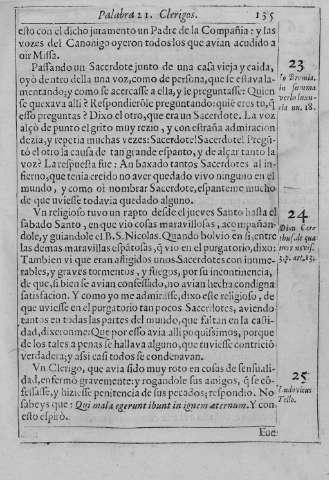 Palabra 21. Clerigos. 135
esto con el dicho juramento un Padre de la Compañia: y las
vozes del Canonigo oyeron todos los que avian acudido a
oir Missa.
Passando un Sacerdote junto de una casa vieja y caida,
oyò dentro della una voz, como de persona, que se estava la-
mentando; y como se acercasse a ella, y le preguntasse: Quien
se quexava alli? Respondieròle preguntando: quiè eres tu, q̃
esso preguntas? Dixo el otro, que era un Sacerdote. La voz
alçò de punto el grito muy rezio, y con estraña admiracion
dezia, y repetia muchas vezes: Sacerdote! Sacerdote! Pregũ-
tò el otro la causa de tan grande espanto, y de alçar tanto la
voz? La respuesta fue: An baxado tantos Sacerdotes al in-
fierno, que tenia creido no aver quedado vivo ninguno en el
mundo, y como oi nombrar Sacerdote, espanteme mucho
de que uviesse todavia quedado alguno.
23
in summa
verb. luxu-
ria nu. 18.
Un religioso tuvo un rapto desde el jueves Santo hasta el
sabado Santo, en que vio cosas maravillosas, acompañan-
dole, y guiandole el B. S. Nicolas. Quando bolvio en si, entre
las demas maravillas espãtosas, q̃ vio en el purgatorio, dixo:
Tambien vi que eran afligidos unos Sacerdotes con innume-
rables, y graves tormentos, y fuegos, por su incontinencia,
de que, si bien se avian confessado, no avian hecho condigna
satisfacion. Y como yo me admirasse, dixo esse religioso, de
que uviesse en el purgatorio tan pocos Sacerdotes, aviendo
tantos en todas las partes del mundo, que faltan en la casti-
dad, dixeronme: Que por esso avia alli poquissimos, porque
de los tales a penas se hallava alguno, que tuviesse contriciò
verdadera; y assi casi todos se condenavan.
24
Dion. Car-
Un Clerigo, que avia sido muy roto en cosas de sensuali-
dad, enfermò gravemente: y rogandole sus amigos, q̃ se cõ-
fessasse, y hiziesse penitencia de sus pecados; respondio. No
sabeys que: Qui mala egerunt ibunt in ignem æternum. Y con
esto espirò.
25
Ludovicus
Tello.
Fue